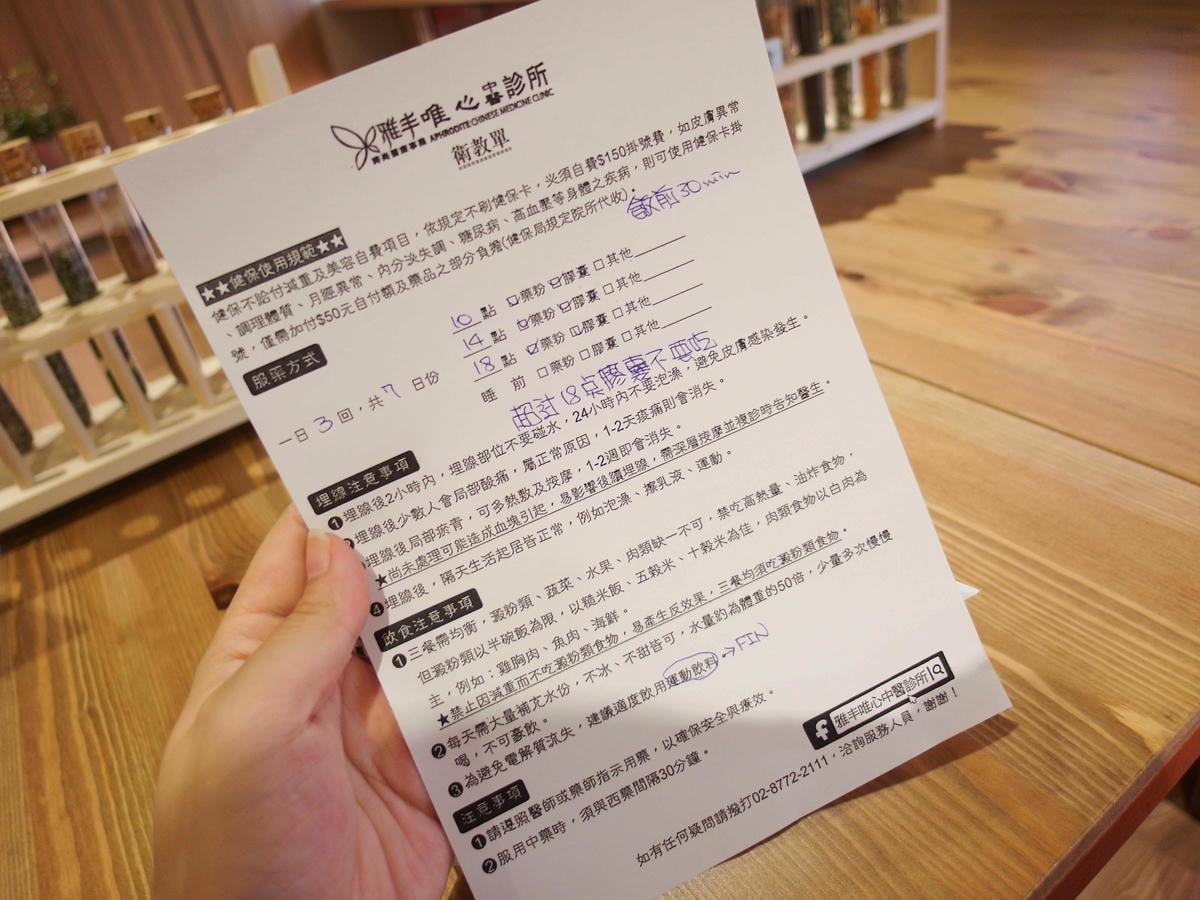 雅丰唯心中醫診所
APHRODITE CHINESE MEDICINE CLINIC
術教單
★★健保使用規範★★
健保不給付減重及美容自費項目，依規定不刷健保卡，必須自費$150掛號費，如皮膚異常
、調理體質、月經異常、內分泌失調、糖尿病、高血壓等身體之疾病，則可使用健保卡掛
號，僅需加付$50元自付額及藥品之部分負擔(健保局規定院所代收)。
飯前30min
服藥方式
一日3回，共7日份
10點 ☑藥粉 ☑膠囊 □其他
14點 ☑藥粉 ☑膠囊 □其他
18點 ☑藥粉 ☑膠囊 □其他
睡前 □藥粉 □膠囊 □其他
超过18点膠囊不要吃
埋線注意事項
❶埋線後2小時內，埋線部位不要碰水，24小時內不要泡澡，避免皮膚感染發生。
埋線後少數人會局部酸痛，屬正常原因，1-2天痠痛則會消失。
埋線後局部瘀青，可多熱敷及按摩，1-2週即會消失。
★尚未處理可能造成血塊引起，易影響後續埋線，需深層按摩並複診時告知醫生。
❹埋線後，隔天生活起居皆正常，例如泡澡、擦乳液、運動。
飲食注意事項
❶三餐需均衡，澱粉類、蔬菜、水果、肉類缺一不可，禁吃高熱量、油炸食物，
但澱粉類以半碗飯為限，以糙米飯、五穀米、十榖米為佳，肉類食物以白肉為
主，例如：雞胸肉、魚肉、海鮮。
★禁止因減重而不吃澱粉類食物，易產生反效果，三餐均須吃澱粉類食物。
❷每天需大量補充水份，不冰、不甜皆可，水量約為體重的50倍，少量多次慢慢
喝，不可豪飲。
❸為避免電解質流失，建議適度飲用運動飲料。→FIN
注意事項
❶請遵照醫師或藥師指示用藥，以確保安全與療效。
❷服用中藥時，須與西藥間隔30分鐘。
f 雅丰唯心中醫診所
如有任何疑問請撥打02-8772-2111，洽詢服務人員，謝謝！